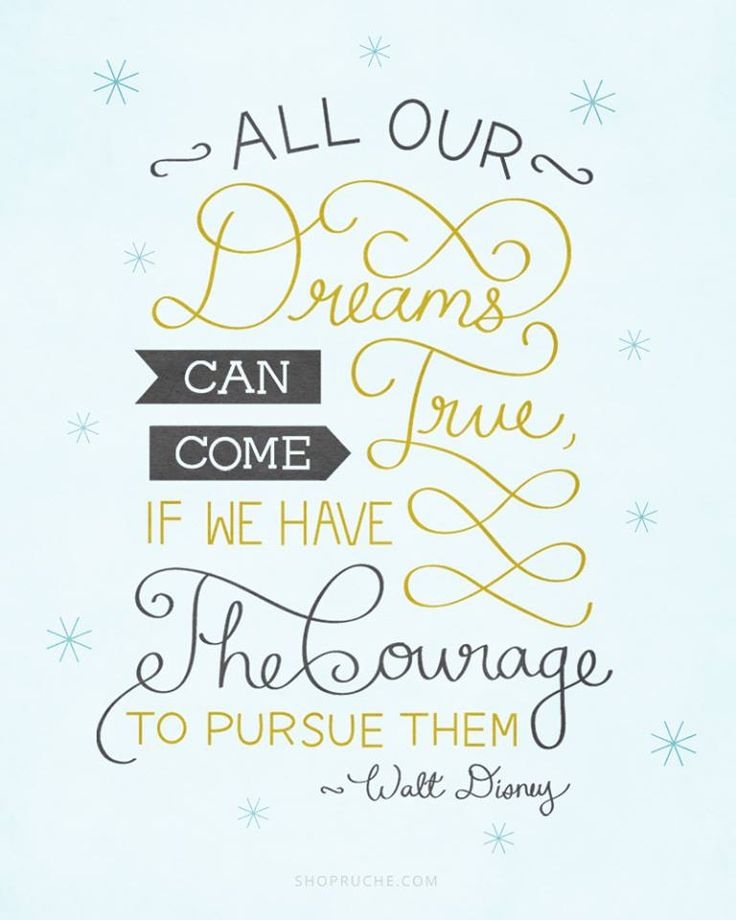 ~ALL OUR~
Dreams
CAN
COME
True,
IF WE HAVE
The Courage
TO PURSUE THEM
~Walt Disney
SHOPRUCHE.COM